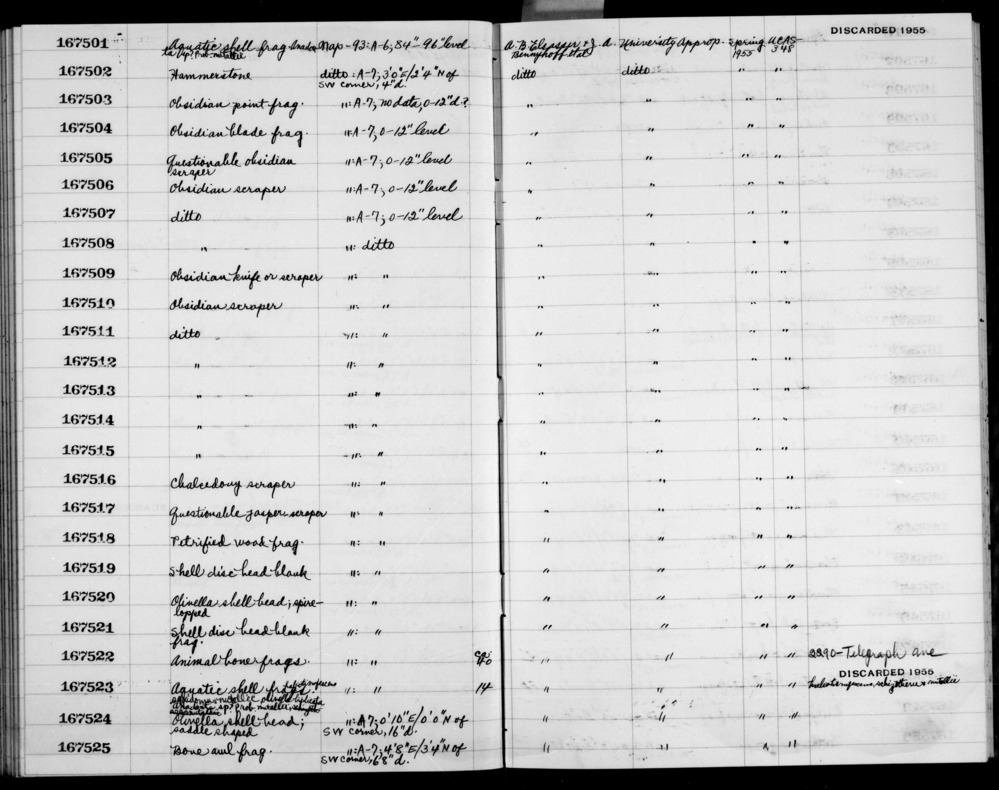 DISCARDED 1955
167501 Aquatic shell frag Nap-93: A-6; 84"-96" level A. B. Elsasser & J. A. University Approp. Spring UCAS-
Bennyhoff et al 1955 348
167502 Hammerstone ditto: A-7; 3'0"E/2'4"N of ditto ditto " "
SW corner, 4"d.
167503 Obsidian point frag. ": A-7; no data, 0-12"d? " " " "
167504 Obsidian blade frag. ": A-7; 0-12" level " " " "
167505 Questionable obsidian ": A-7; 0-12" level " " " "
scraper
167506 Obsidian scraper ": A-7; 0-12" level " " " "
167507 ditto ": A-7; 0-12" level " " " "
167508 " ": ditto " " " "
167509 Obsidian knife or scraper ": " " " " "
167510 Obsidian scraper ": " " " " "
167511 ditto ": " " " " "
167512 " ": " " " " "
167513 " ": " " " " "
167514 " ": " " " " "
167515 " ": " " " " "
167516 Chalcedony scraper ": " " " " "
167517 Questionable jasper scraper ": " " " " "
167518 Petrified wood frag. ": " " " " "
167519 Shell disc bead blank ": " " " " "
167520 Olivella shell bead; spire- ": " " " " "
lopped
167521 Shell disc bead blank ": " " " " "
frag.
167522 Animal bone frags. ": " ca. 40 " " " " 2290-Telegraph ave
DISCARDED 1955
167523 Aquatic shell frags. ": " 14 " " " "
167524 Olivella shell bead; ": A-7; 0'10"E/0'0"N of " " " "
saddle shaped SW corner, 16"d.
167525 Bone awl frag. ": A-7; 4'8"E/3'4"N of " " " "
SW corner, 6'8"d.